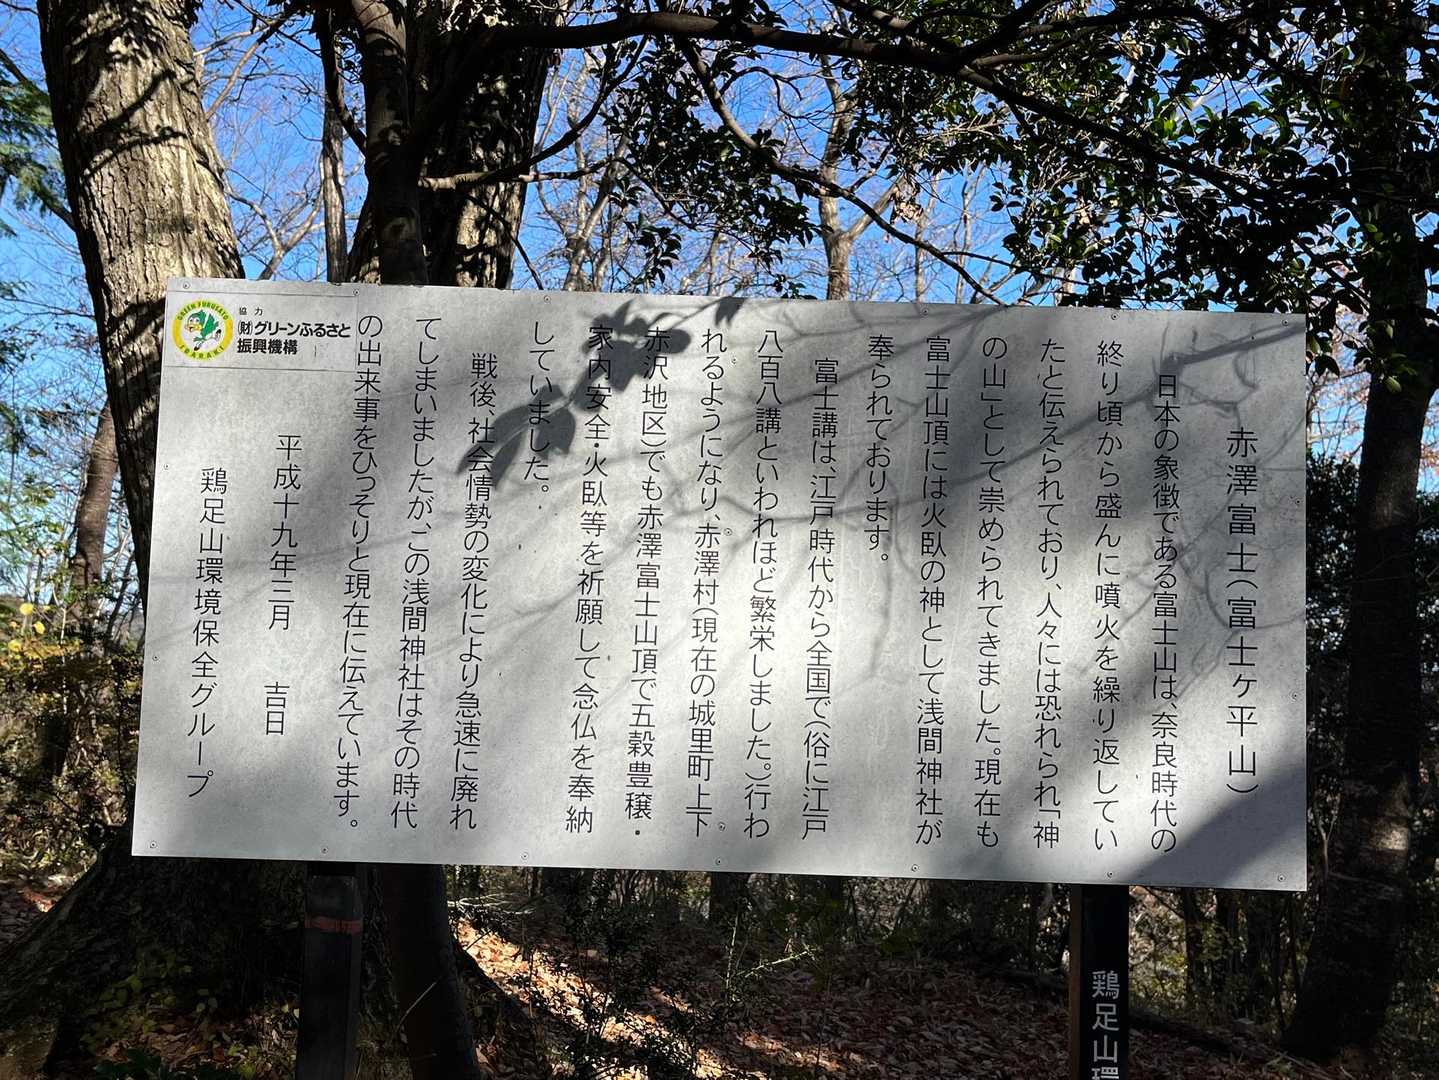 赤澤富士(富士ヶ平山)
日本の象徴である富士山は、奈良時代の
終り頃から盛んに噴火を繰り返してい
たと伝えられており、人々には恐れられ「神
の山」として崇められてきました。現在も
富士山頂には火臥の神として浅間神社が
奉られております。
富士講は、江戸時代から全国で(俗に江戸
八百八講といわれほど繁栄しました。)行わ
れるようになり、赤澤村(現在の城里町上下
赤沢地区)でも赤澤富士山頂で五穀豊穣・
家内安全・火臥等を祈願して念仏を奉納
していました。
戦後、社会情勢の変化により急速に廃れ
てしまいましたが、この浅間神社はその時代
の出来事をひっそりと現在に伝えています。
平成十九年三月 吉日
鶏足山環境保全グループ
協力
(財)グリーンふるさと
振興機構
GREEN FURUSATO
IBARAKI
鶏足山環